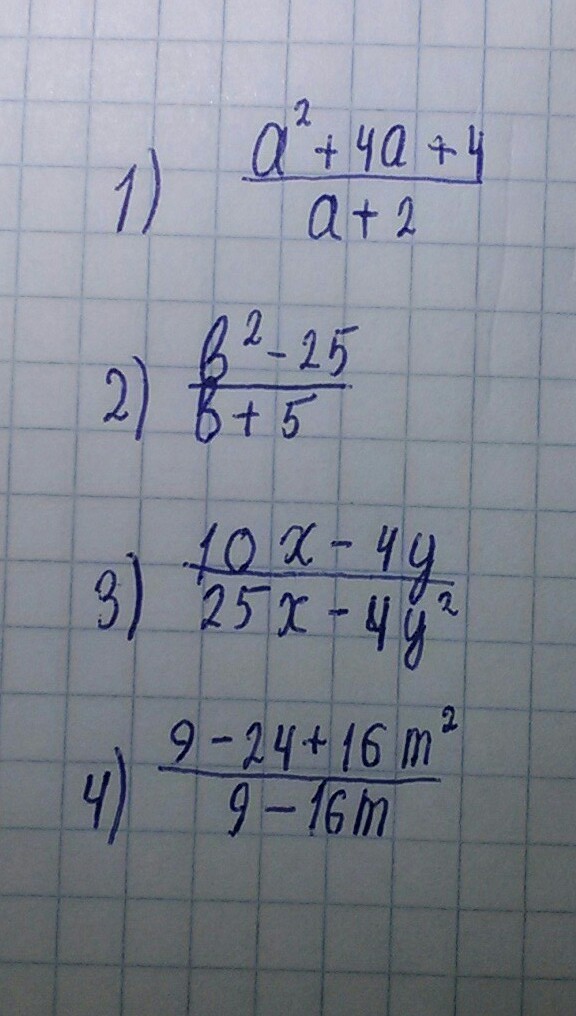 1) a² + 4a + 4
a + 2
2) b² - 25
b + 5
3) 10x - 4y
25x - 4y²
4) 9 - 24 + 16m²
9 - 16m